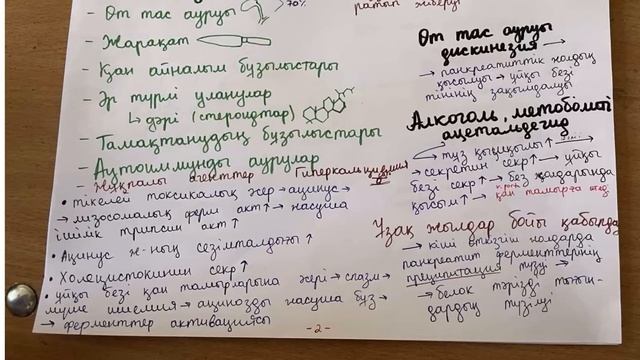 - Өт тас ауруы
70%
- Жарақат
- Қан айналым бұзылыстары
- Әр түрлі уланулар
↳ дәрі (стероидтар)
- Тамақтанудың бұзылыстары
- Аутоиммунды аурулар
- Жұқпалы агенттер Гиперкальциемия
• тікелей токсикалық әсер → ацинус →
→ лизосомалық ферм акт↑ → насуша
ішілік трипсин акт↑
• Ацинус ж-ның сезімталдығы ↑
• Холецистокинин секр ↑
• ұйқы безі қан тамырларына әсері → спазм →
→ ацинозды насуша бұз →
→ ферменттер активациясы
- 2 -
жіберуі
Өт тас ауруы
дискинезия →
→ панкреатиттік жолдың
қысылуы → ұйқы безі
тінінің зақымдалуы
Алкоголь, метоболиті
ацетальдегид
→ тұз қышқылы ↑
→ секретин секр↑ → ұйқы
безі секр↑ → без жолдарында
қысым ↑ → қан тамырға өтеді
Ұзақ жылдар бойы қабылдау
→ кіші өткізгіш жолдарда
панкреат ферменттерінің
преципитация түзу →
→ белок тәрізді тығын-
дардың түзілуі